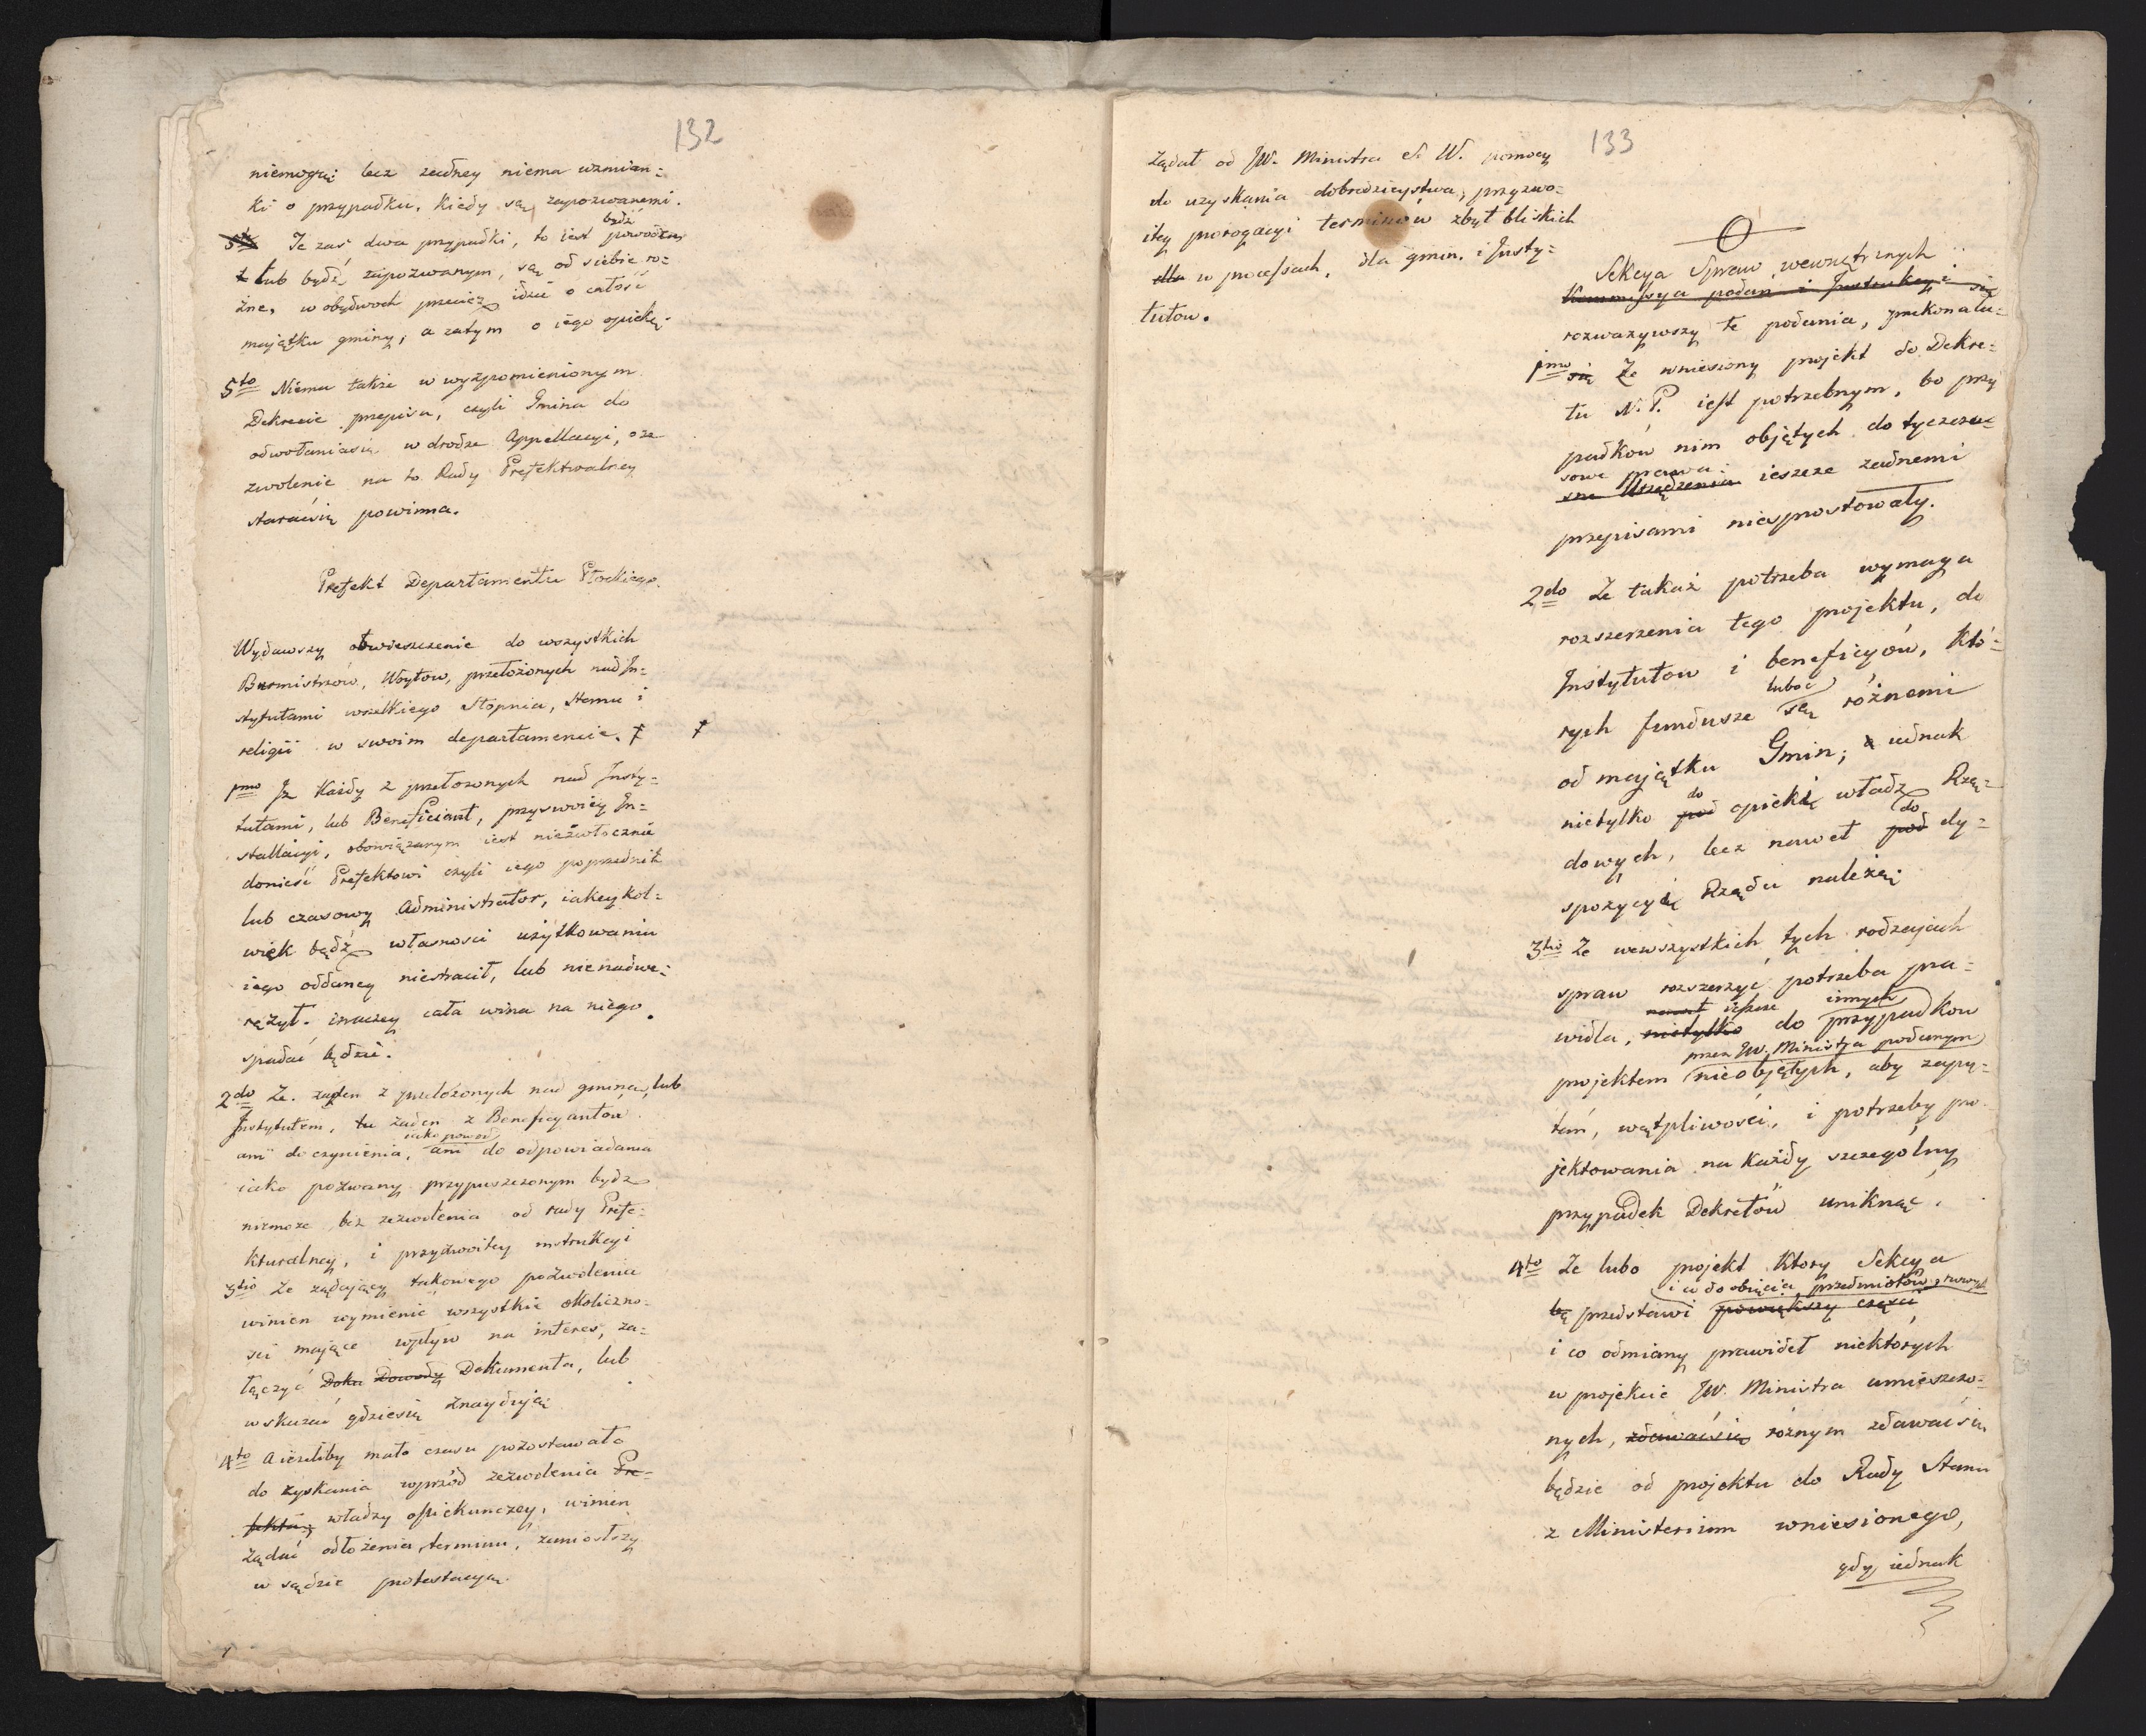 132
niemogą; lecz żadney niema wzmian=
ki o przypadku, kiedy są zapozwanemi.
Te zaś dwa przypadki, to iest bydź powodem
lub bydź zapozwanym, są od siebie ró=
żne, w obydwóch przecież idzie o całość
majątku gminy, a zatym o iego opiekę.
5to Niema także w wyżpomienionym
Dekrecie przepisu, czyli Gmina do
odwołaniasię w drodze Appellacyi, ze
zwolenie na to Rady Prefekturalney
staraćsię powinna.
Prefekt Departamentu Płockiego.
Wydawszy obwieszczenie do wszystkich
Burmistrzów, Woytów, przełożonych nad In=
stytutami wszelkiego Stopnia, stanu i
religii w swoim departamencie. † †
1mo Iż każdy z przełożonych nad Insty=
tutami, lub Beneficiant, przy swoiey In=
stallacyi, obowiązanym iest niezwłocznie
donieść Prefektowi czyli iego poprzednik
lub czasowy Administrator, iakeykol=
wiek bądź własności użytkowaniu
iego oddaney niestracił, lub nienadwe=
rężył. inaczey cała wina na niego
spadać będzie.
2do Że żaden z przełożonych nad gminą, lub
Instytutem, tu żaden z Beneficyantów
ani do czynienia, iako powod ani do odpowiadania
iako pozwany przypuszczonym bydz
niemoże bez zezwolenia od rady Prefe=
kturalney, i przyzwoitey instrukcyi
3tio Że żądaiący takowego pozwolenia
winien wymienić wszystkie okoliczno=
ści mające wpływ na interes, za=
łączyć Doku Dowody Dokumenta, lub
wskazać gdziesię znayduią
4to A ieżeliby mało czasu pozostawało
do zyskania wprzód zezwolenia Pre=
fekta, władzy opiekunczey, winien
żądać odłożenia terminu, zaniosłszy
w sądzie protestacyą.
133
Żądał od JW. Ministra S. W. pomocy
do uzyskania dobrodzieystwa, przyzwo=
itey prorogacyi terminów zbyt bliskich
dla w processach, dla gmin, i Insty=
tutow.
Sekcya Spraw wewnętrznych
Kommissya podań i Instrukcyi się
rozważywszy te podania, przekonała=
1mo się Że wniesiony projekt do Dekre=
tu N. P. iest potrzebnym, bo przy
padków nim objętych dotyczcza=
sowe prawa
sne Urządzenia ieszcze żadnemi
przepisami niesprostowały.
2do Że takaż potrzeba wymaga
rozszerzenia tego projektu, do
Instytutow i beneficyów, któ=
rych fundusze luboć są różnemi
od majątku Gmin; a iednak
nietylko pod do opieki władz Rzą=
dowych, lecz nawet pod do dy=
spozycyi Rządu należą;
3tio Że wewszystkich tych rodzajach
spraw rozszerzyć potrzeba pra=
widła, nietylko nawet ieszcze do innych przypadkow
przez JW. Ministra podanym
projektem nieobjętych, aby zapy=
tań, wątpliwości, i potrzeby pro
jektowania na każdy szczególny
przypadek Dekretów uniknąć.
4to Że lubo projekt ktory Sekcya
i co do obięcia przedmiotów, nowych
bę przedstawi powiększy części
i co odmiany prawideł niektorych
w projekcie JW. Ministra umieszczo=
nych, zdawaćsię różnym zdawaćsię
będzie od projektu do Rady Stanu
z Ministerium wniesionego,
gdy iednak